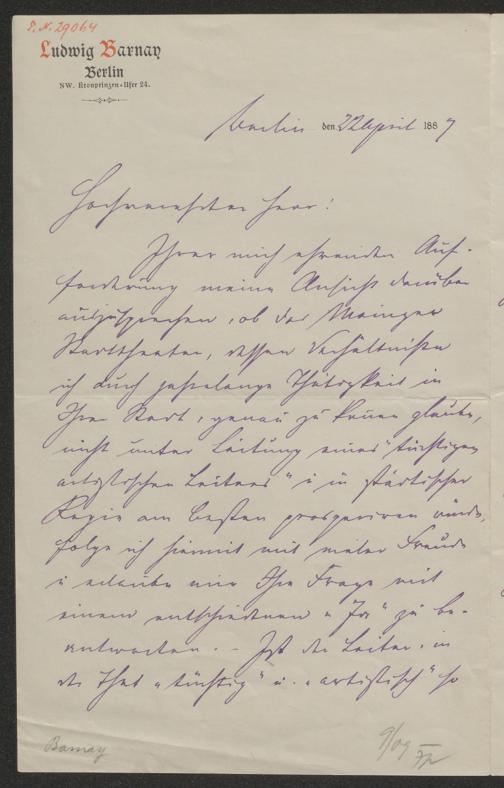 P. N. 29064
Ludwig Barnay
Berlin
NW. Kronprinzen-Ufer 24.
Berlin den 22 April 1887
Hochverehrter Herr!
Ihrer mich ehrenden Auf-
forderung meine Ansicht darüber
auszusprechen, ob das Mainzer
Stadttheater, dessen Verhältnisse
ich durch jahrelange Thätigkeit in
Ihrer Stadt, genau zu kennen glaube,
nicht unter Leitung eines "tüchtigen
artistischen Leiters" u in städtischer
Regie am besten prosperiren würde,
folge ich hiermit mit vieler Freude
u erlaube mir Ihre Frage mit
einem entschiedenen "Ja" zu be-
antworten. - Ist der Leiter, in
der That "tüchtig" u. "artistisch" so
Barnay
9/09